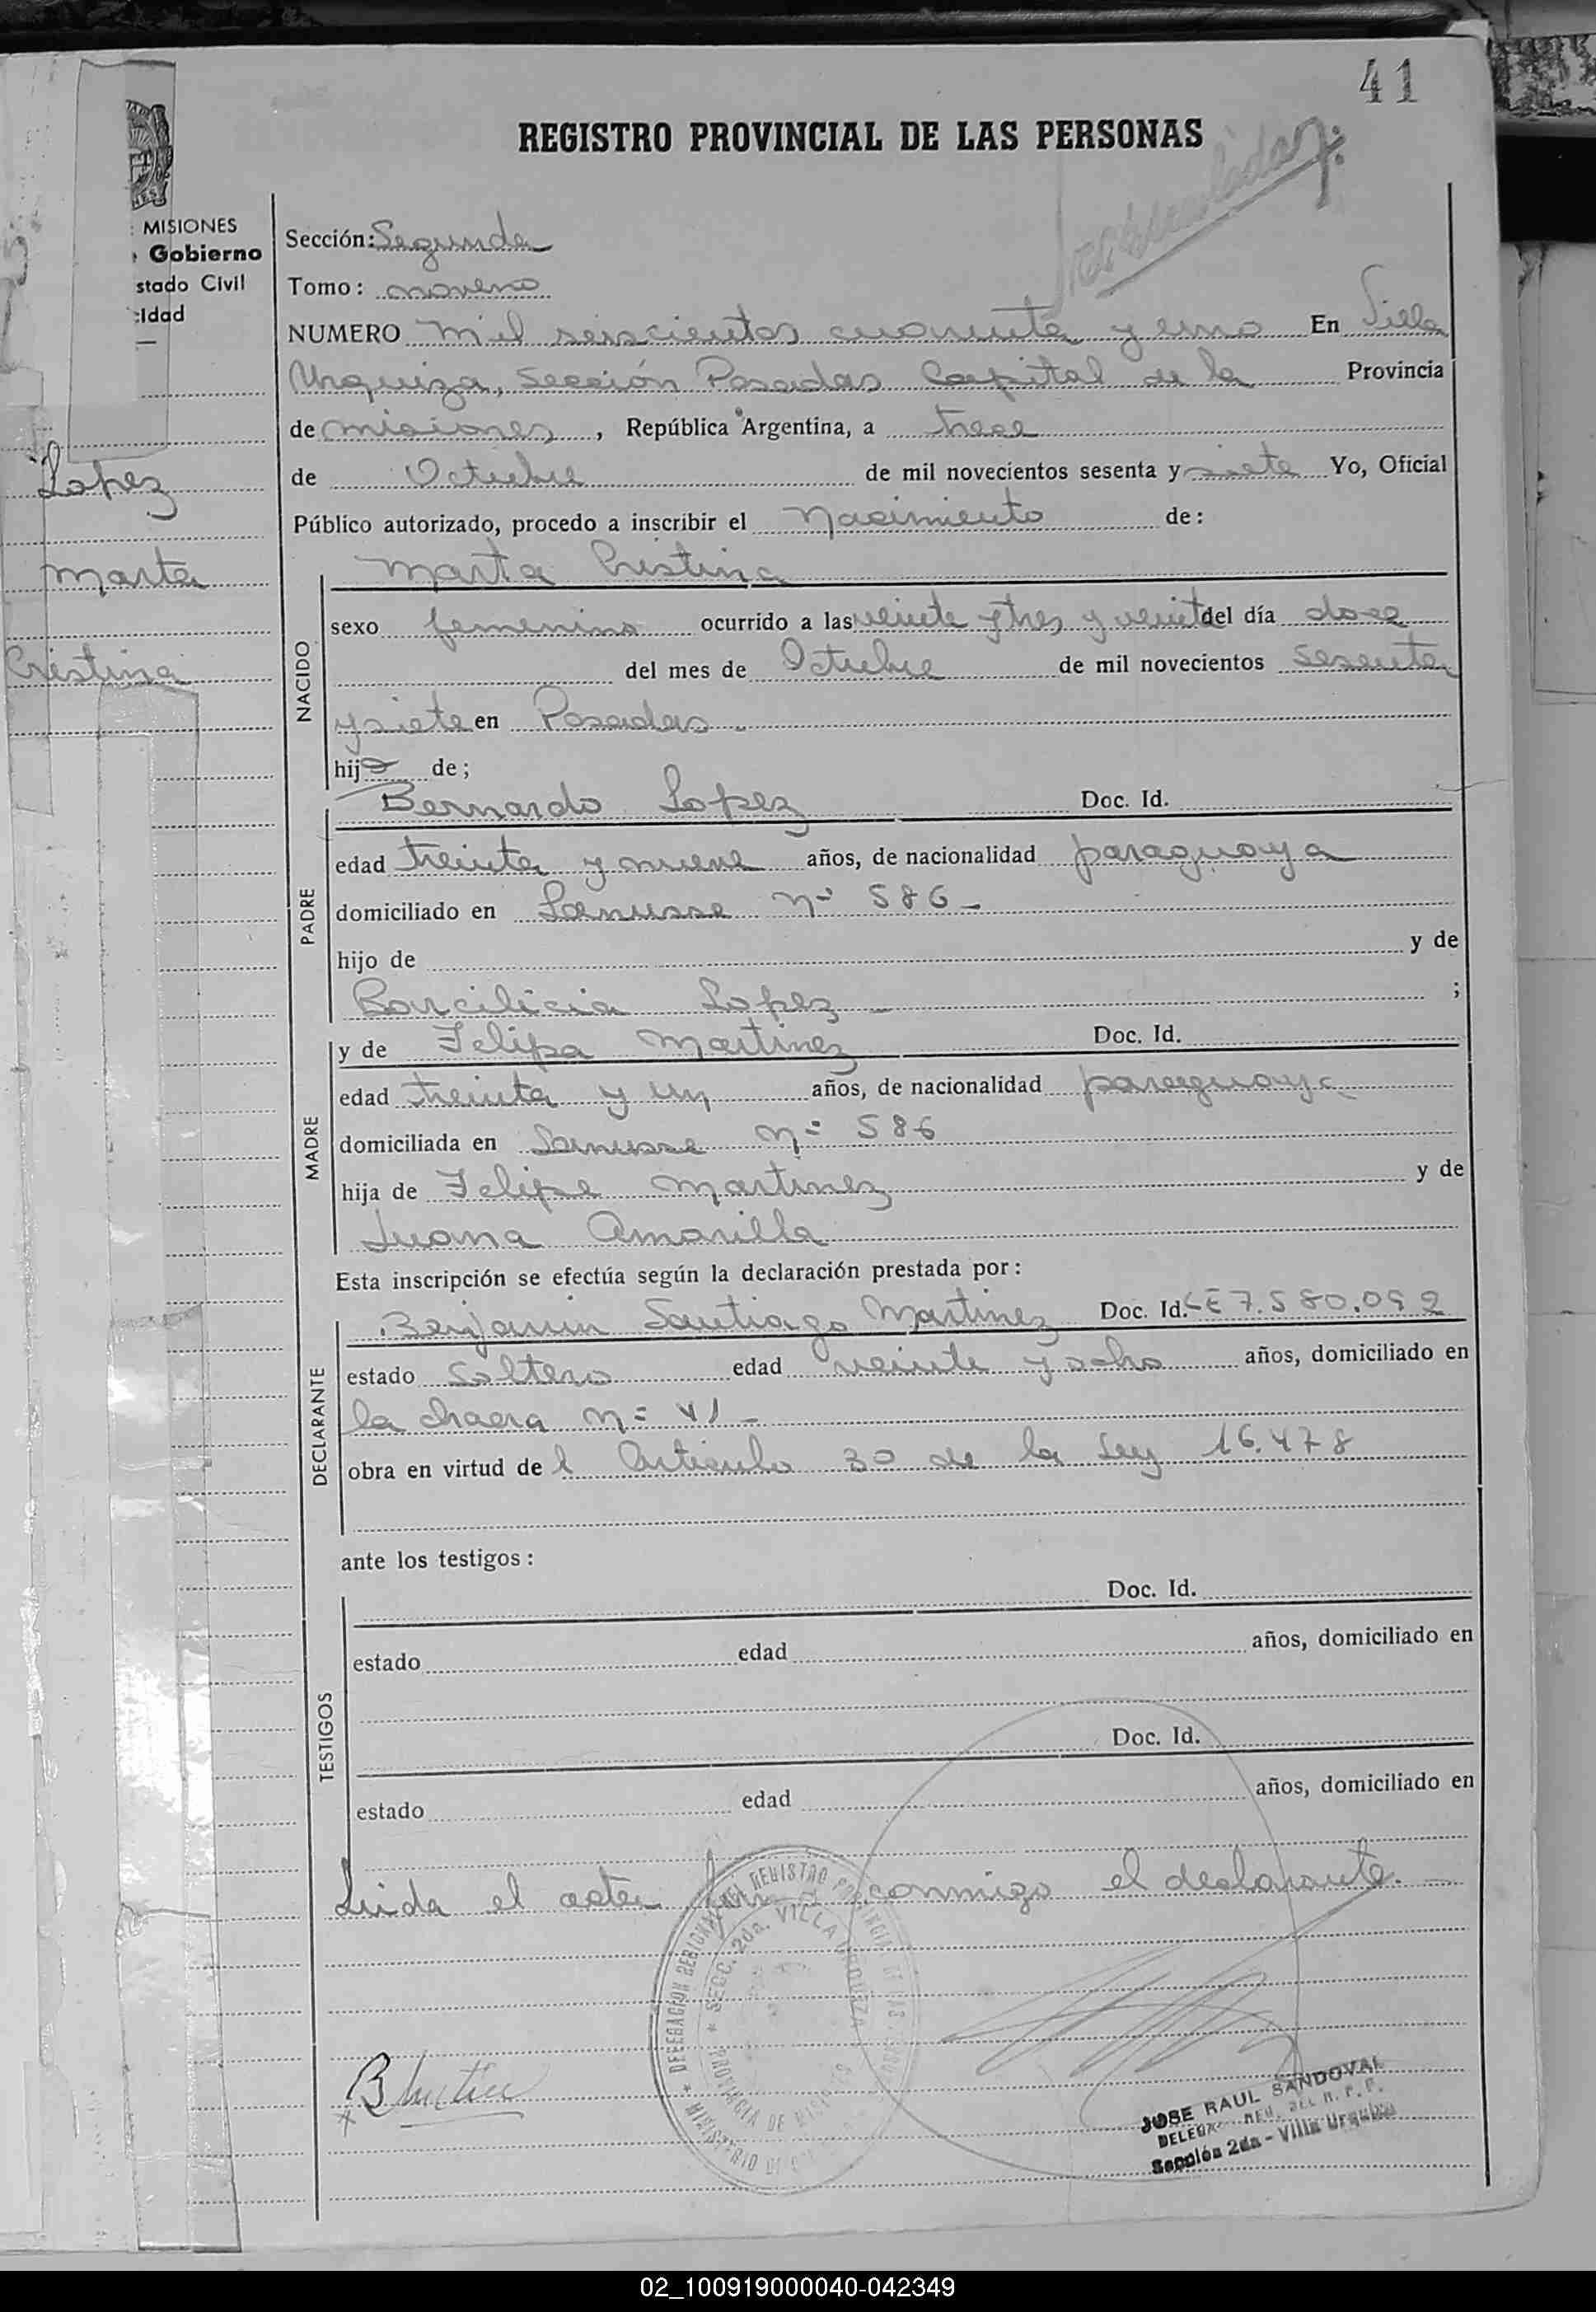 41
REGISTRO PROVINCIAL DE LAS PERSONAS
MISIONES
Gobierno
stado Civil
cidad
Lopez
Marta
Cristina
Sección: Segunda
Tomo: noveno
NUMERO Mil seiscientos cuarenta y uno En Villa
Urquiza, Sección Posadas Capital de la Provincia
de Misiones, República Argentina, a trece
de Octubre de mil novecientos sesenta y siete Yo, Oficial
Público autorizado, procedo a inscribir el Nacimiento de:
Marta Cristina
NACIDO
sexo femenino ocurrido a las veinte y tres y veinte del día doce
del mes de Octubre de mil novecientos sesenta
y siete en Posadas.
hija de;
PADRE
Bernardo Lopez Doc. Id.
edad treinta y nueve años, de nacionalidad paraguaya
domiciliado en Lanusse Nº 586-
hijo de y de
Barcilicia Lopez ;
MADRE
y de Felipa Martinez Doc. Id.
edad treinta y un años, de nacionalidad paraguaya
domiciliada en Lanusse Nº 586
hija de Felipe Martinez y de
Juana Amarilla
Esta inscripción se efectúa según la declaración prestada por:
DECLARANTE
Benjamin Santiago Martinez Doc. Id. LE 7.580.092
estado Soltero edad veinte y ocho años, domiciliado en
la chacra Nº 41-
obra en virtud del Articulo 30 de la Ley 16.478
ante los testigos:
TESTIGOS
Doc. Id.
estado edad años, domiciliado en
Doc. Id.
estado edad años, domiciliado en
Leida el acta firma conmigo el declarante.-
DELEGACION REGIONAL DEL REGISTRO PROVINCIAL DE LAS
SECC. 2da. VILLA URQUIZA
PROVINCIA DE MISIONES
MINISTERIO DE
B Martinez
JOSE RAUL SANDOVAL
Sección 2da - Villa Urquiza
02_100919000040-042349